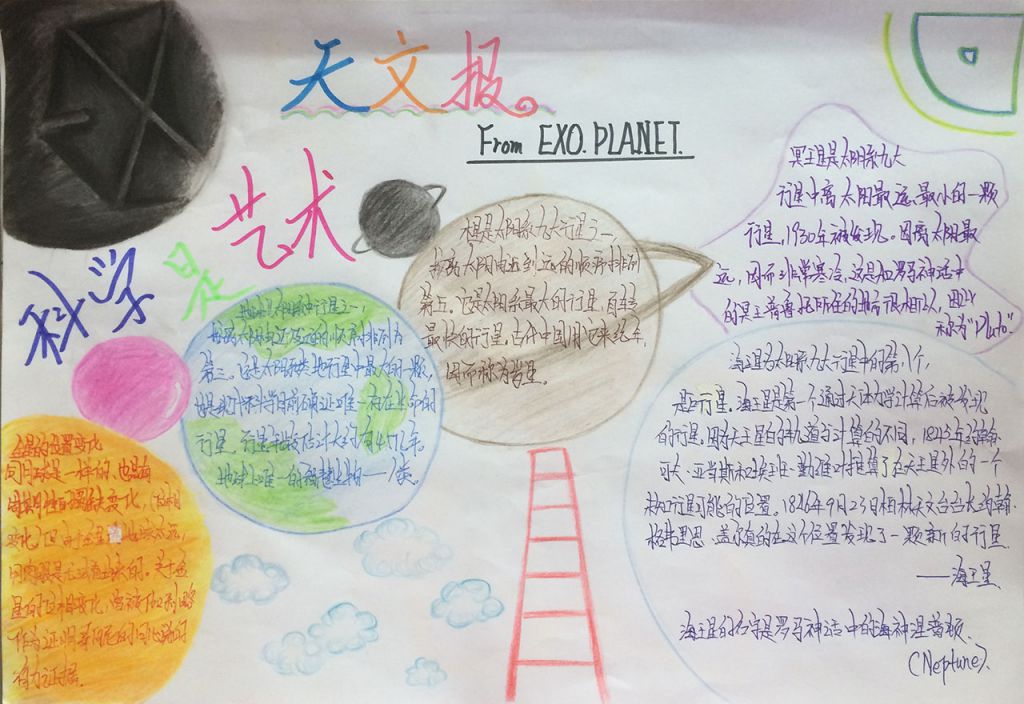 天文报。
From EXO.PLANET.
科学是艺术
木星是太阳系九大行星之一
按离太阳由近到远的顺序排列
第五。它是太阳系最大的行星,自转
最快的行星,古代中国用它来纪年,
因而称为岁星。
冥王星是太阳系九大
行星中离太阳最远、最小的一颗
行星,1930年被发现。因离太阳最
远,因而非常寒冷,这是和罗马神话中
的冥王普鲁托所住的地方很相似,因此
称为"Pluto"
地球是太阳系八大行星之一,
按离太阳由近及远的次序排列为
第三。它是太阳系类地行星中最大的一颗,
也是现代科学目前确证唯一存在生命的
行星。行星年龄估计大约有45亿年。
地球上唯一的智慧生物——人类。
金星的位置变化
同月球是一样的,也具有
周期性的圆缺变化,(位相
变化)但由于金星
星的位相变化,曾被伽利略
作为证明哥白尼的日心说的
有力证据。
海王星为太阳系九大行星中的第八个,
行星。海王星是第一个通过天体力学计算后被发现
的行星。因为天王星的轨道与计算的不同,1845年约翰·
可夫·亚当斯和埃班·勒维耶推算了在天王星外的一个
未知行星可能的位置。1846年9月23日柏林天文台台长约翰·
格弗里恩·盖尔真的在这个位置发现了一颗新的行星
——海王星
海王星的名字是罗马神话中的海神涅普顿
(Neptune).